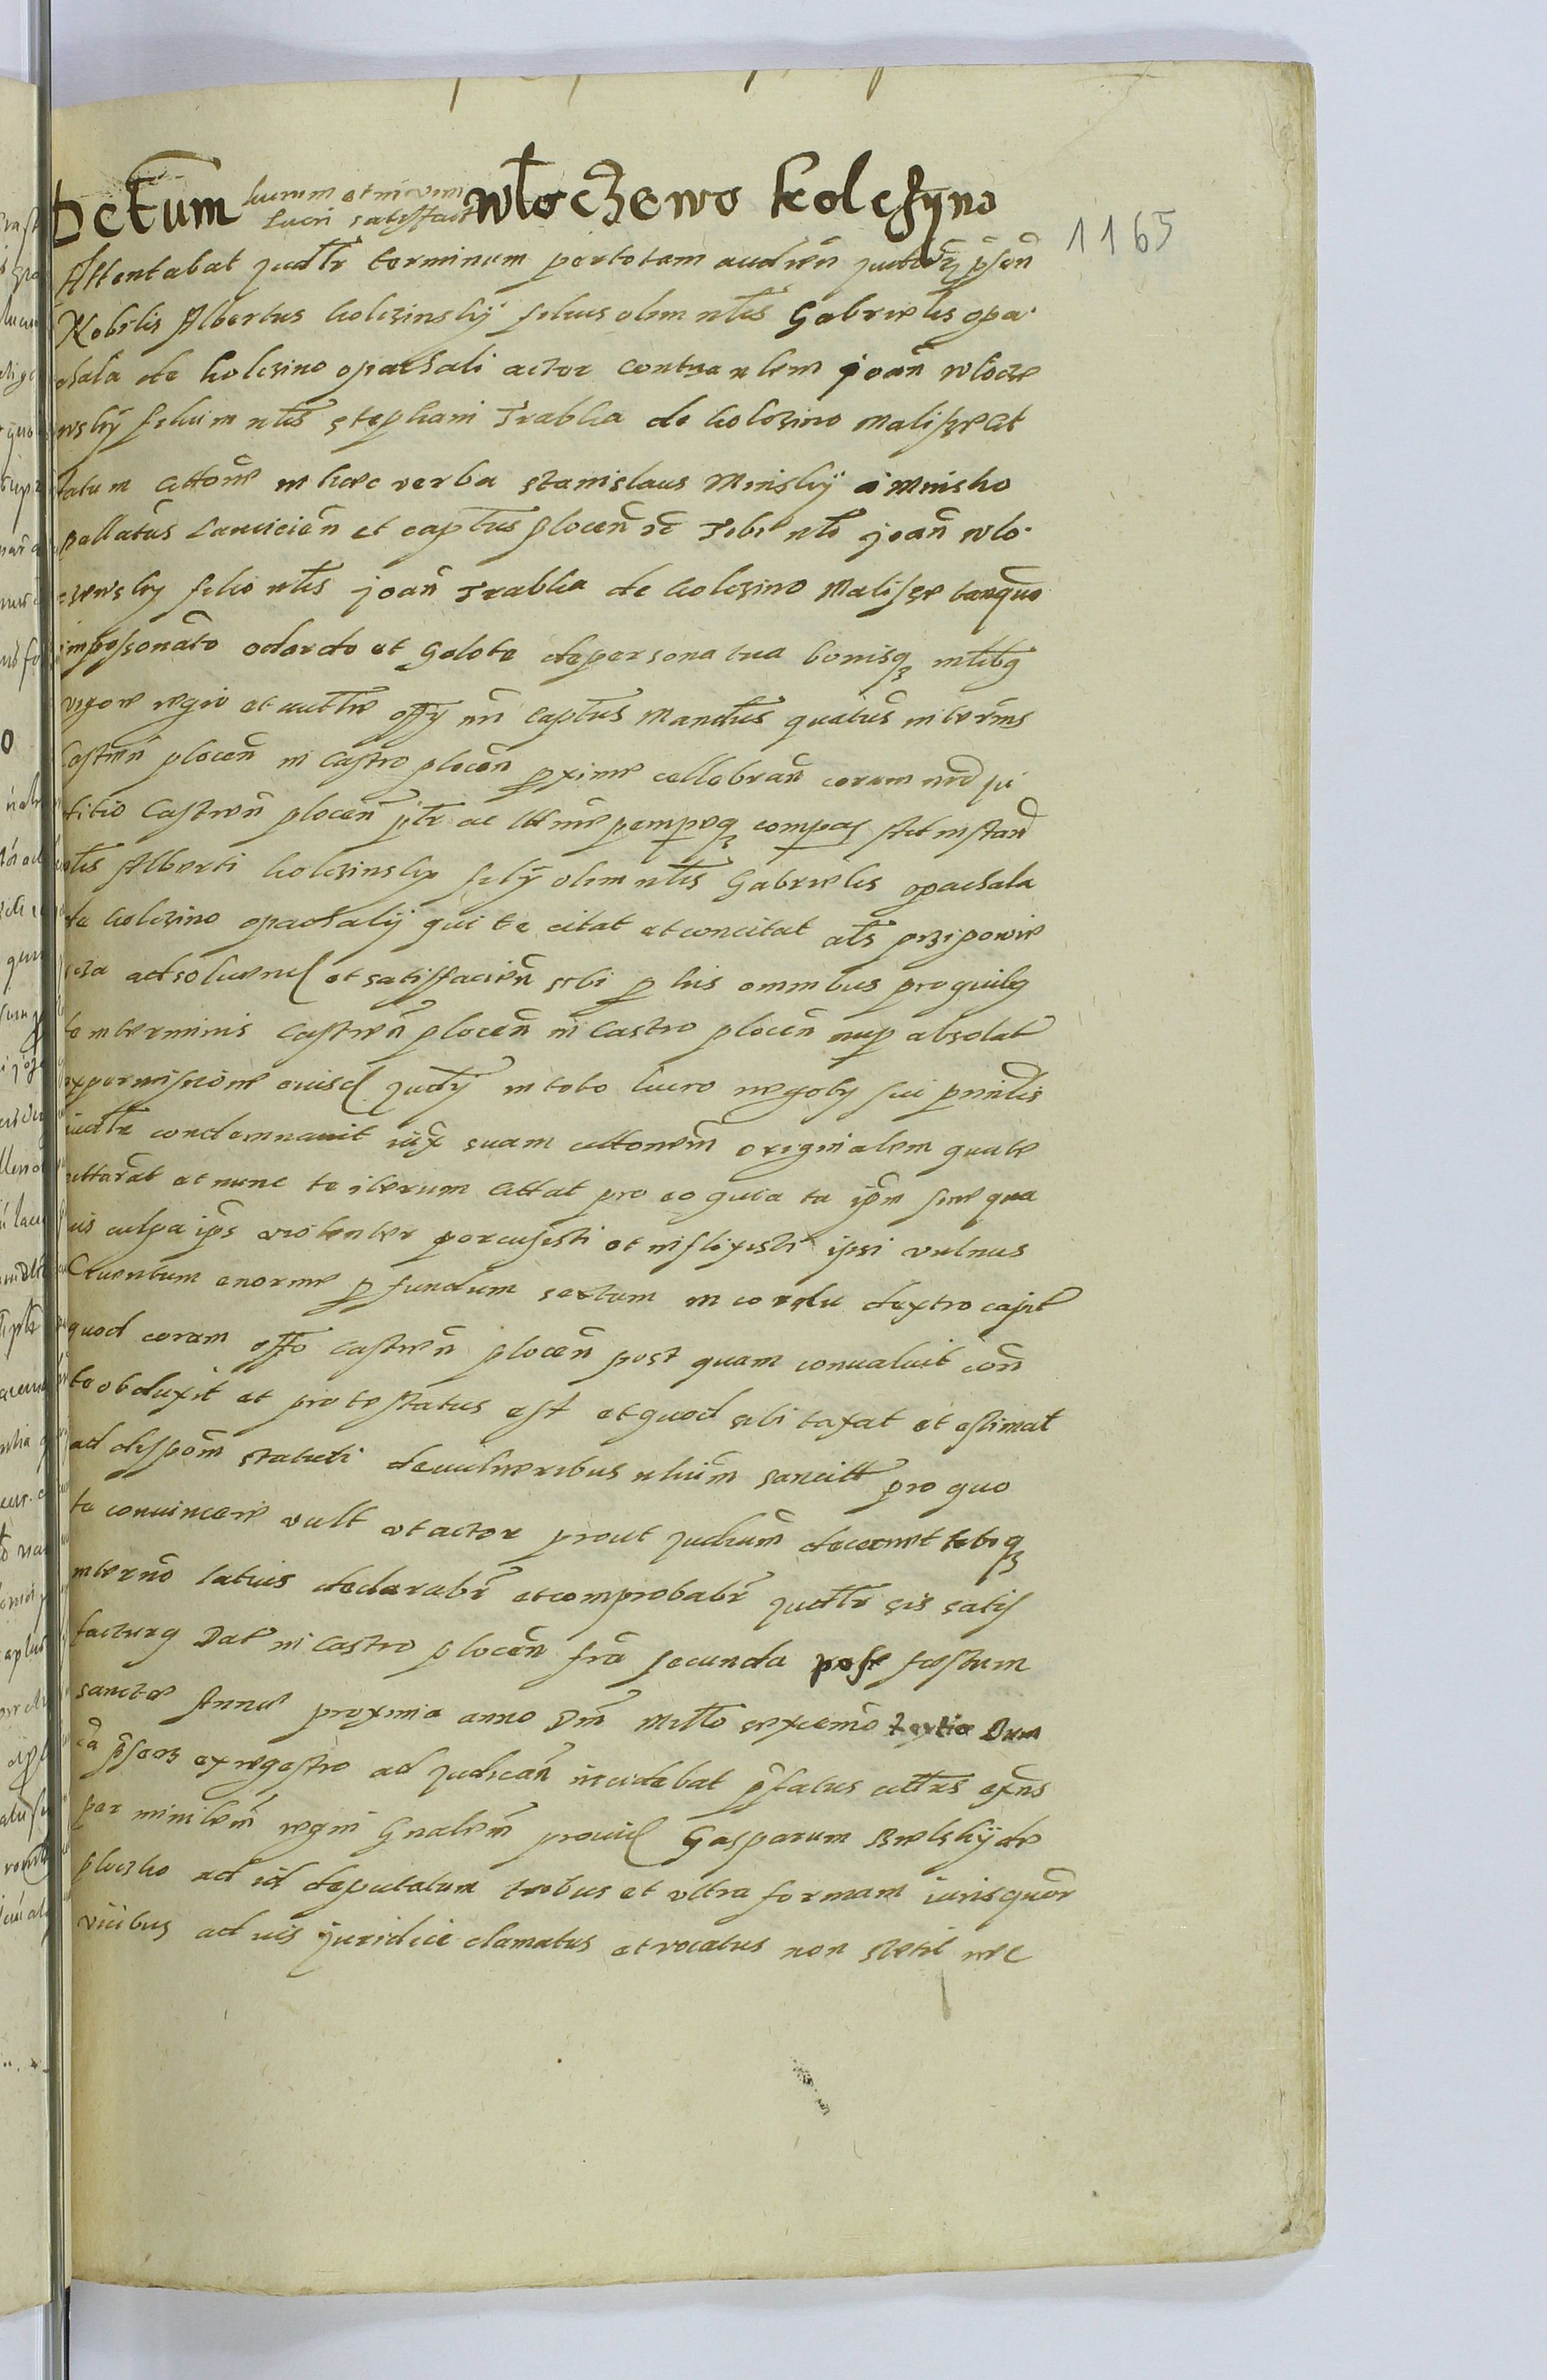 Dctum lucrum et nivem lucri satisfact Włoczewo Kolczyno
1165
Attentabat judtr terminum per totam audien judiciy psen
Nobilis Albertus Kolczinskÿ filius olim nlis Gabrielis Opa
chala de Kolczino opachali actor contra nlem Joan Wlocze
wskÿ filium nlis Stephani Trabka de Kolczino Malissze cit
tatum cittone in haec verba Stanislaus Minskÿ a Minsko
pallatus Lancicien et captus plocen ec Tibi nli Joan Wlo
czewsky filio nlis Joan Trabka de Kolczino Malissze tanquo
impossonato odardo et golote de persona tua bonisq mltibq
vigore regio et auttte offy nri captus mandtus quatus in termis
castren plocen in castro plocen pxime cellebran coram nro ju
ditio castren plocen ptr ac lttime pempeq compas ad instan
nlis Alberti Kolczinsky filÿ olim nlis Gabrielis opachala
de Kolczino opachalÿ qui te citat et concitat als przipowie
scza ad soluend et satisffacien sibi p his omnibus pro quibq
te in terminis castren plocen in castro plocen nup absolut
ex permissione eiusd judÿ in toto lucro negoty sui pnnlis
judtr condemnauit iux suam cittonem originalem qua te
cittarat et nunc te iterum cittat pro eo quia tu ipm sine qua
uis culpa ips violenter percussisti et inflixisti ipsi vulnus
cruentum enorme p fundum sectum in cornu dextro capit
quod coram offo castren plocen post quam conualuit con
te obduxit et protestatus est et quod sibi taxat et estimat
ad disposm statuti de vulneribus nlium sancitt pro quo
te conuincere vult ut actor prout judicium decernet tibiq
in termo latius declarabr et comprobabr judtr sis satis
facturq Dat in castro plocen fra secunda post festum
sanctae Annae proxima anno Dni Millo sexcemo tertio Dum
ca psens ex regestro ad judican incidebat pfatus cittus exns
per minitem regni gnalem prouid Gasparum Bielskÿ de
plocko ad id deputatum trobus et vltra formam iuris quor
vicibus ad uis juridice clamatus et vocatus non stetit nec